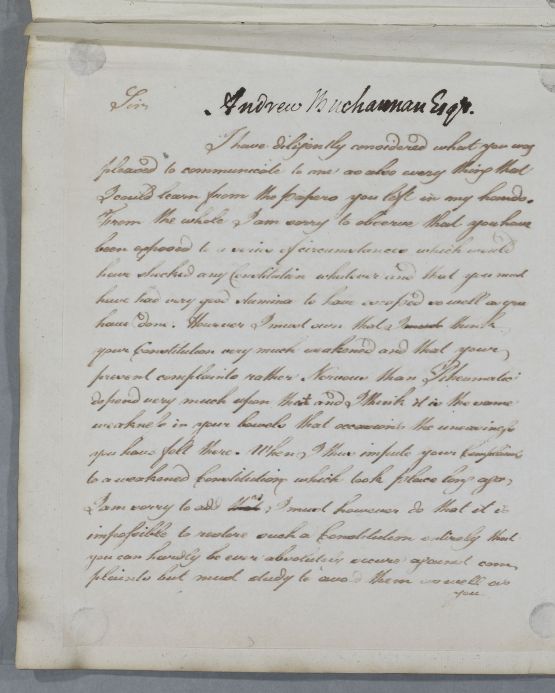 Sir, Andrew Buchannan Esqr.
I have diligently considered what you was
pleased to communicate to me as also every thing that
I could learn from the papers you left in my hands.
From the whole I am sorry to observe that you have
been exposed to a series of circumstances which would
have shocked any Constitution whatever and that you must
have had very good Stamina to have escaped so well as you
have done. However I must own that I must think
your Constitution very much weakened and that your
present complaints rather Nervous than Rheumatic
depend very much upon that and I think it is the same
weakness in your bowels that occasions the uneasiness
you have felt there. When I thus impute your Complaints
to a weakened Constitution which took place long ago,
I am sorry to add I must however do that it is
impossible to restore such a Constitution entirely that
you can hardly be ever absolutely secure against com,
plaints but must study to avoid them as well as
you